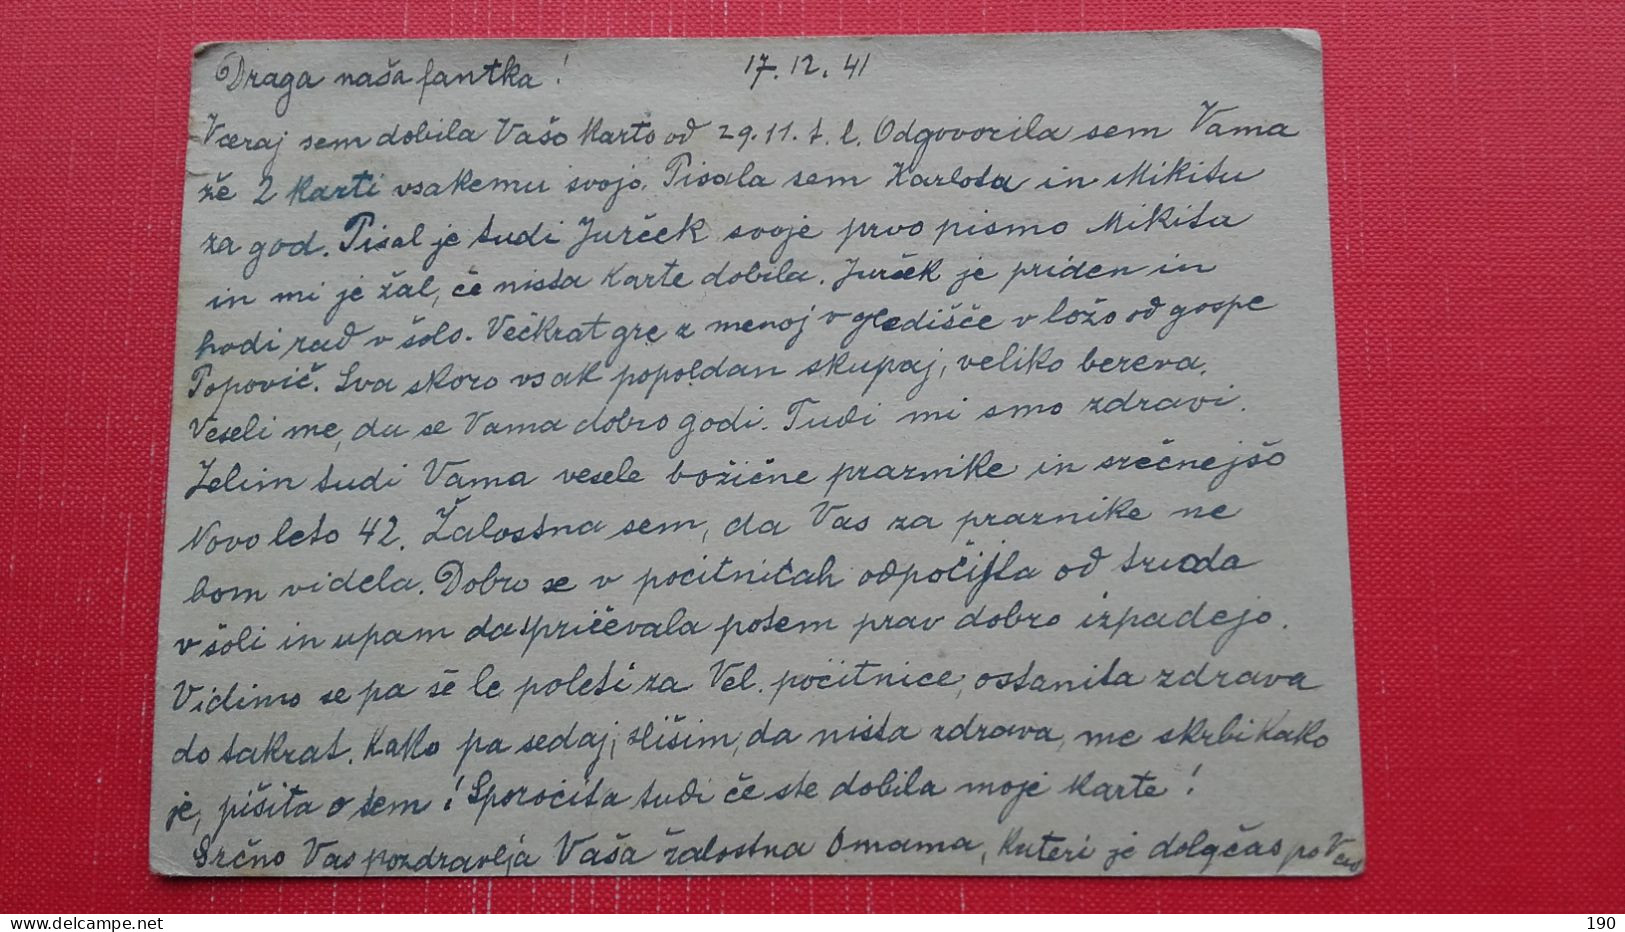 Draga naša fantka! 17.12.41
Včeraj sem dobila Vašo Karto od 29.11. t. l. Odgovorila sem Vama
že 2 Karti vsakemu svojo. Pisala sem Karlota in Mikitu
za god. Pisal je tudi Jurček svoje prvo pismo Mikitu
in mi je žal, če nista Karte dobila. Jurček je priden in
hodi rad v šolo. Večkrat gre z menoj v gledišče v ložo od gospe
Popovič. Sva skoro vsak popoldan skupaj, veliko bereva.
Veseli me, da se Vama dobro godi. Tudi mi smo zdravi.
Želim tudi Vama vesele božične praznike in srečnejšo
Novo leto 42. Žalostna sem, da Vas za praznike ne
bom videla. Dobro se v počitnicah odpočijta od truda
v šoli in upam da spričevala potem prav dobro izpadejo.
Vidimo se pa še le poleti za Vel. počitnice, ostanita zdrava
do takrat. Kako pa sedaj, slišim, da nista zdrava, me skrbi Kako
je, pišita o tem! Sporočita tudi če ste dobila moje Karte!
Srčno Vas pozdravlja Vaša žalostna Omama, Kateri je dolgčas po Vas
190